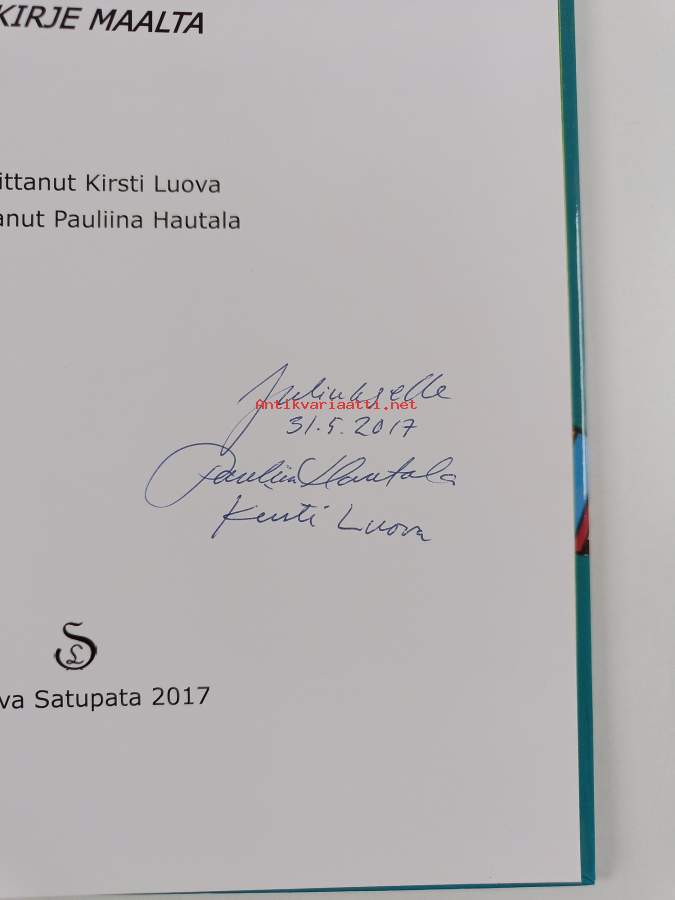 KIRJE MAALTA
ittanut Kirsti Luova
anut Pauliina Hautala
Juliukselle
Antikvariaatti.net
31.5.2017
Pauliina Hautala
Kirsti Luova
SL
va Satupata 2017